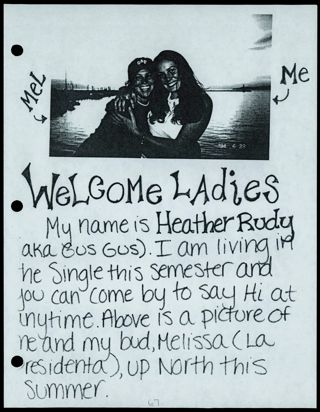 Mel
Me
'94 6 29
Welcome Ladies
My name is Heather Rudy
aka Gus Gus). I am living in
he Single this semester and
you can come by to say Hi at
nytime. Above is a picture of
me and my bud, Melissa (La
residenta), up North this
summer.
67